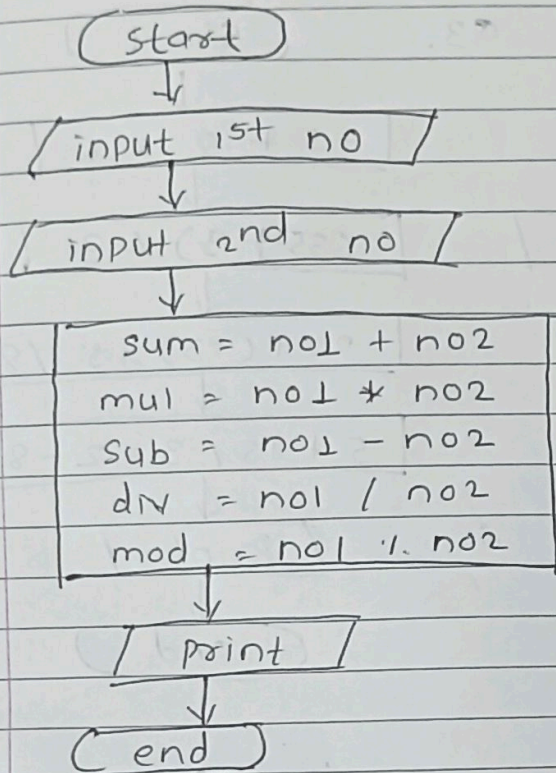 start
input 1st no
input 2nd no
sum = no1 + no2
mul = no1 * no2
sub = no1 - no2
div = no1 / no2
mod = no1 % no2
print
end